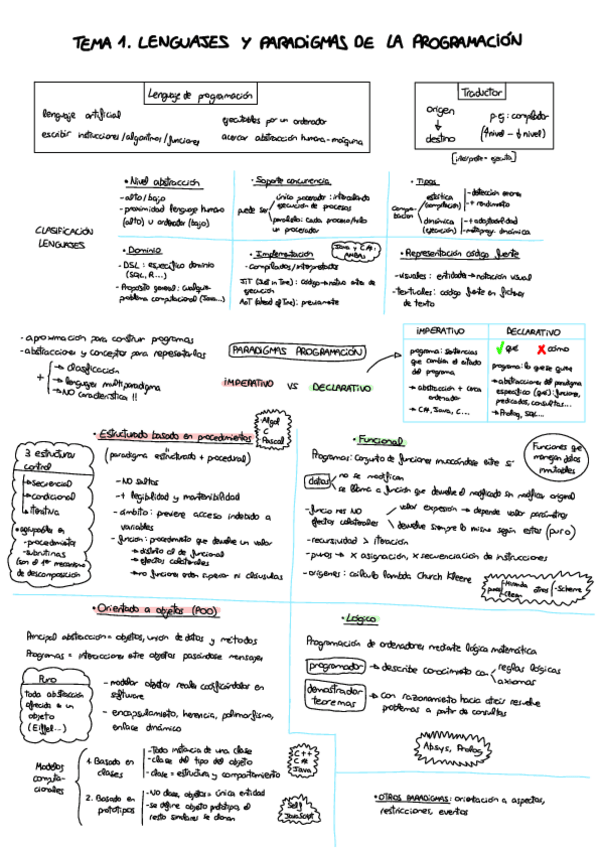 TEMA 1. LENGUAJES Y PARADIGMAS DE LA PROGRAMACIÓN
Lenguaje de programación
lenguaje artificial
ejecutables por un ordenador
escribir instrucciones/algoritmos/funciones
acercar abstracción humana-máquina
Traductor
origen
destino
p.ej: compilador
(↑nivel → ↓nivel)
[intérprete = ejecuta]
CLASIFICACIÓN
LENGUAJES
• Nivel abstracción
- alto/bajo
- proximidad lenguaje humano
(alto) u ordenador (bajo)
• Soporte concurrencia
puede ser
único procesador: intercalando
ejecución de procesos
paralelo: cada proceso/hilo
un procesador
• Tipos
comprobación
estática
(compilación)
- detección errores
- + rendimiento
dinámica
(ejecución)
- + adaptabilidad
- metaprogr. dinámica
• Dominio
- DSL: específico dominio
(SQL, R...)
- Propósito general: cualquier
problema computacional (Java...)
• Implementación
Java y C#:
AMBAS
- compilados/interpretados
JIT (Just in Time): código → nativo antes de
ejecución
AoT (Ahead of Time): previamente
• Representación código fuente
- visuales: entidades → notación visual
- textuales: código fuente en ficheros
de texto
- aproximación para construir programas
- abstracciones y conceptos para representarlos
+
→ clasificación
→ lenguajes multiparadigma
→ NO característica !!
PARADIGMAS PROGRAMACIÓN
IMPERATIVO VS DECLARATIVO
IMPERATIVO
programa: sentencias
que cambian el estado
del programa
→ abstracción + cerca
ordenador
→ C#, Java, C...
DECLARATIVO
✓ qué ✗ cómo
programa: lo que se quiere
→ abstracciones del paradigma
específico (qué): funciones,
predicados, consultas...
→ Prolog, SQL...
• Estructurado basado en procedimientos
(paradigma estructurado + procedural)
Algol
C
Pascal
3 estructuras
control
→ secuencial
→ condicional
→ iterativa
• agrupables en
- procedimientos
- subrutinas
(son el 1er mecanismo
de descomposición)
- NO saltos
- + legibilidad y mantenibilidad
- ámbito: prevenir acceso indebido a
variables
- función: procedimiento que devuelve un valor
→ distinto al de funcional
→ efectos colaterales
→ no funciones orden superior ni cláusulas
• Funcional
Programas: conjunto de funciones invocándose entre sí
Funciones que
manejan datos
inmutables
datos
no se modifican
se llama a función que devuelve el modificado sin modificar original
- funciones NO
efectos colaterales
valor expresión → depende valor parámetros
devuelve siempre lo mismo según estos (puro)
- recursividad > iteración
- puros → X asignación, X secuenciación de instrucciones
- orígenes: cálculo lambda Church Kleene
puros
- Miranda
- Clean
otros
- Scheme
• Orientado a objetos (POO)
Principal abstracción = objetos, unión de datos y métodos
Programas = interacciones entre objetos pasándose mensajes
Puro
Toda abstracción
ofrecida es un
objeto
(Eiffel...)
- modelar objetos reales codificándolos en
software
- encapsulamiento, herencia, polimorfismo,
enlace dinámico
Modelos
computacionales
1. Basado en
clases
- Todo instancia de una clase
- clase del tipo del objeto
- clase = estructura y comportamiento
C++
C#
Java
2. Basado en
prototipos
- NO clase, objetos = única entidad
- se define objeto prototipo, el
resto similares se clonan
Self
JavaScript
• Lógico
Programación de ordenadores mediante lógica matemática
programador → describe conocimiento con
reglas lógicas
axiomas
demostrador
teoremas
→ con razonamiento hacia atrás resuelve
problemas a partir de consultas
Absys, Prolog
• OTROS PARADIGMAS: orientación a aspectos,
restricciones, eventos